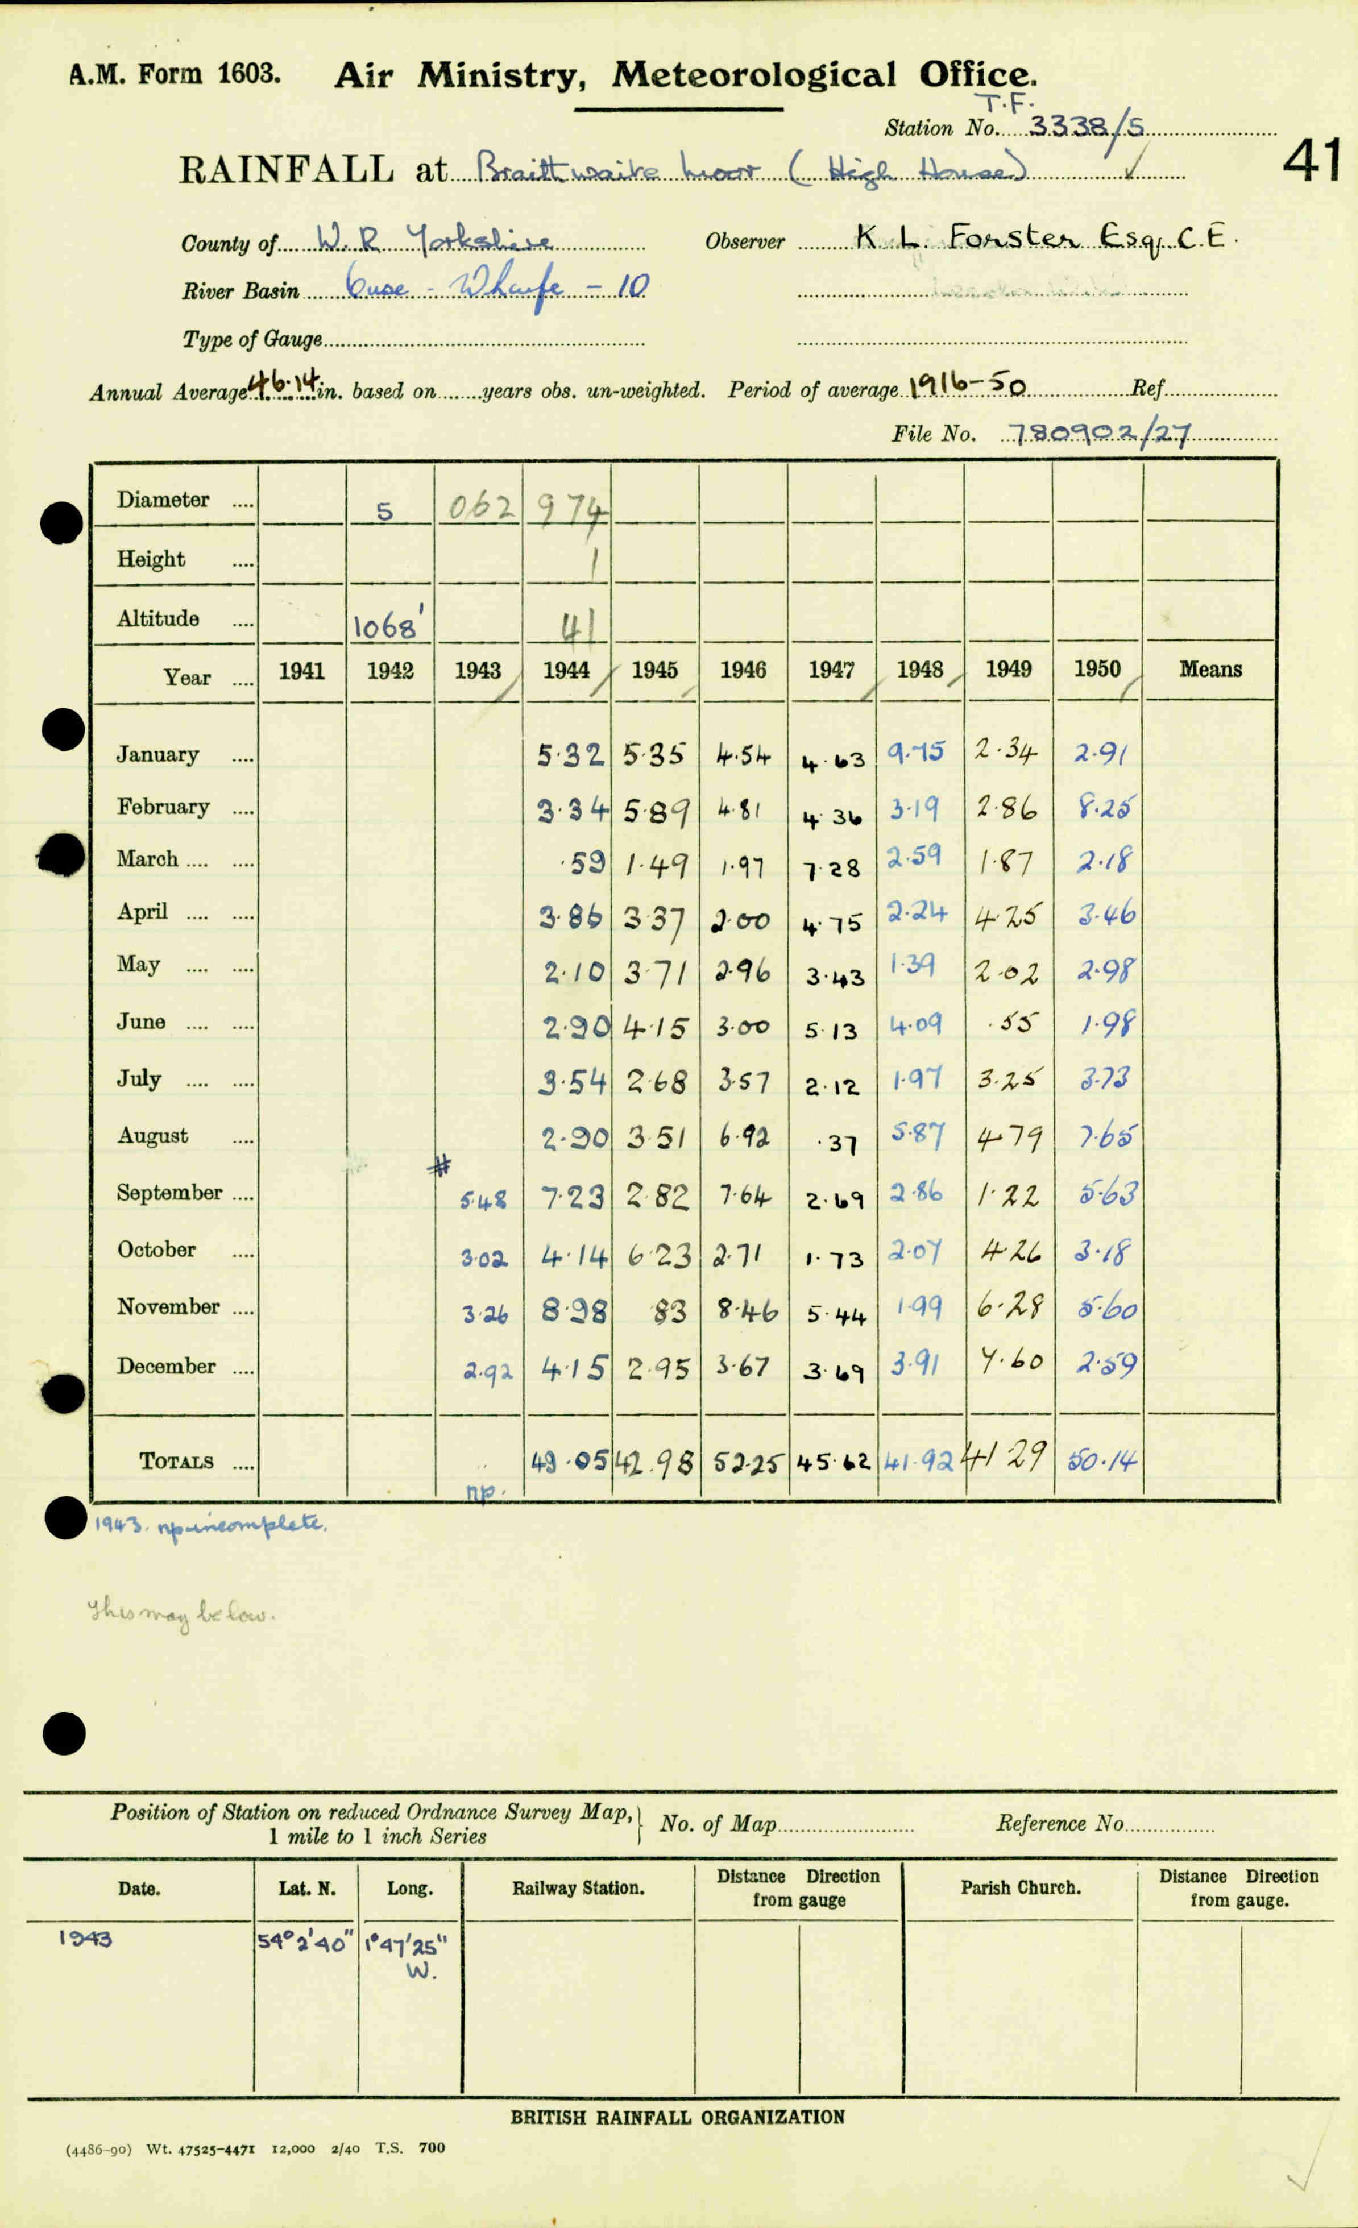 A.M. Form 1603. Air Ministry, Meteorological Office.
T.F.
Station No. 3338/5
41
RAINFALL at Braithwaite Moor (High House)
County of W. R Yorkshire Observer K L. Forster Esq. C.E.
River Basin Ouse - Wharfe - 10
Type of Gauge
Annual Average 46.14 in. based on years obs. un-weighted. Period of average 1916-50 Ref.
File No. 780902/27
Diameter 5 062 974
Height 1
Altitude 1068' 41
Year 1941 1942 1943 1944 1945 1946 1947 1948 1949 1950 Means
January 5.32 5.35 4.54 4.63 9.75 2.34 2.91
February 3.34 5.89 4.81 4.36 3.19 2.86 8.25
March .59 1.49 1.97 7.28 2.59 1.87 2.18
April 3.86 3.37 2.00 4.75 2.24 4.25 3.46
May 2.10 3.71 2.96 3.43 1.39 2.02 2.98
June 2.90 4.15 3.00 5.13 4.09 .55 1.98
July 3.54 2.68 3.57 2.12 1.97 3.25 3.73
August 2.90 3.51 6.92 .37 5.87 4.79 7.65
September 5.48 7.23 2.82 7.64 2.69 2.86 1.22 5.63
October 3.02 4.14 6.23 2.71 1.73 2.07 4.26 3.18
November 3.26 8.98 83 8.46 5.44 1.99 6.28 5.60
December 2.92 4.15 2.95 3.67 3.69 3.91 7.60 2.59
TOTALS 49.05 42.98 52.25 45.62 41.92 41 29 50.14
np.
1943. np incomplete.
This may be low.
Position of Station on reduced Ordnance Survey Map, 1 mile to 1 inch Series No. of Map Reference No.
Date. Lat. N. Long. Railway Station. Distance Direction from gauge Parish Church. Distance Direction from gauge.
1943 54° 2' 40" 1° 47' 25" W.
BRITISH RAINFALL ORGANIZATION
(4486-90) Wt. 47525-4471 12,000 2/40 T.S. 700